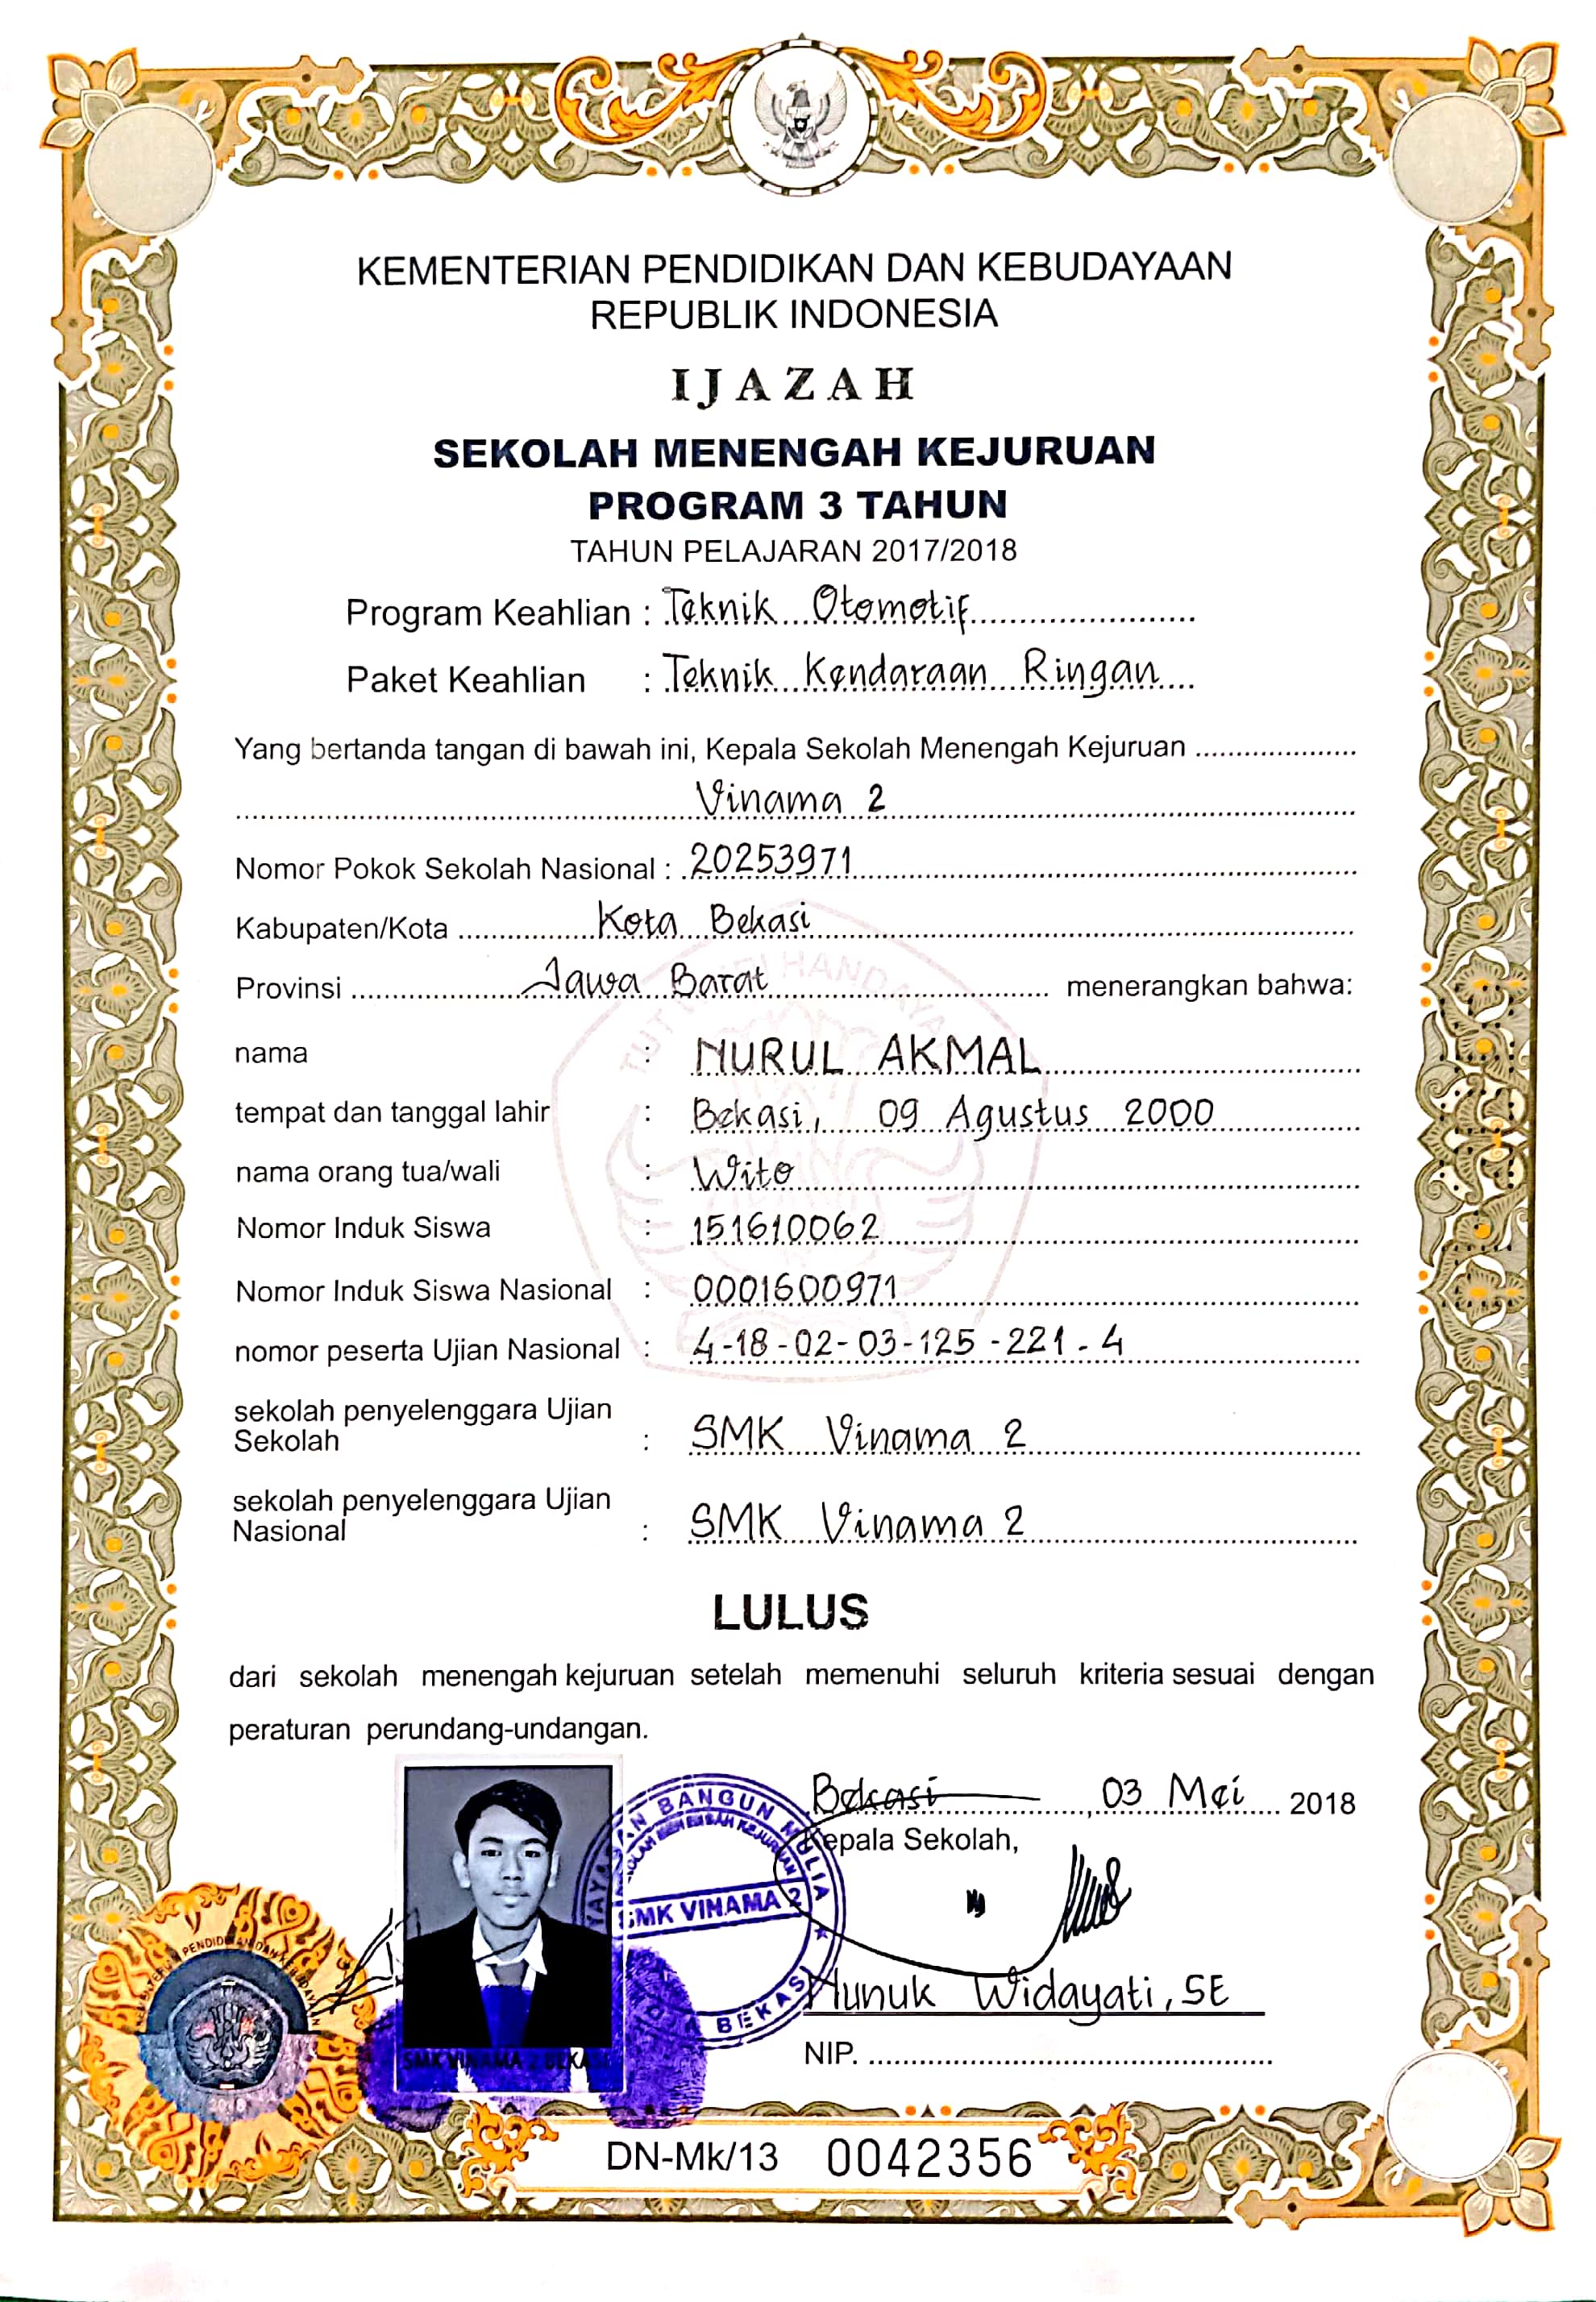 KEMENTERIAN PENDIDIKAN DAN KEBUDAYAAN
REPUBLIK INDONESIA
IJAZAH
SEKOLAH MENENGAH KEJURUAN
PROGRAM 3 TAHUN
TAHUN PELAJARAN 2017/2018
Program Keahlian : Teknik Otomotif
Paket Keahlian : Teknik Kendaraan Ringan
Yang bertanda tangan di bawah ini, Kepala Sekolah Menengah Kejuruan
Vinama 2
Nomor Pokok Sekolah Nasional : 20253971
Kabupaten/Kota Kota Bekasi
Provinsi Jawa Barat menerangkan bahwa:
nama : NURUL AKMAL
tempat dan tanggal lahir : Bekasi, 09 Agustus 2000
nama orang tua/wali : Wito
Nomor Induk Siswa : 151610062
Nomor Induk Siswa Nasional : 0001600971
nomor peserta Ujian Nasional : 4-18-02-03-125-221-4
sekolah penyelenggara Ujian
Sekolah : SMK Vinama 2
sekolah penyelenggara Ujian
Nasional : SMK Vinama 2
LULUS
dari sekolah menengah kejuruan setelah memenuhi seluruh kriteria sesuai dengan
peraturan perundang-undangan.
Bekasi, 03 Mei 2018
Kepala Sekolah,
YAYASAN BANGUN MULIA
SEKOLAH MENENGAH KEJURUAN
SMK VINAMA 2
BEKASI
Nunuk Widayati, SE
NIP.
SMK VINAMA 2 BEKASI
2018
DN-Mk/13 0042356